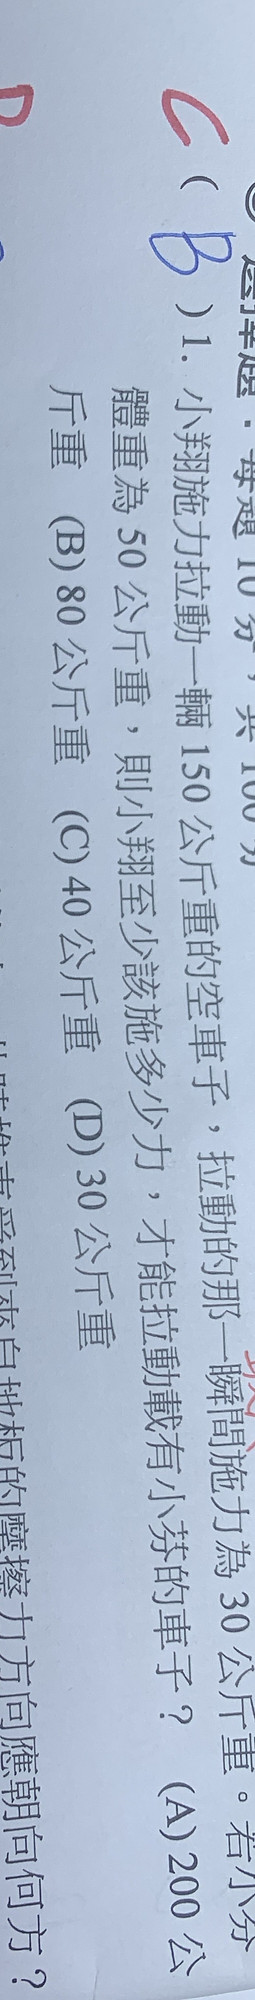 選擇題：每題 10 分，共 100 分
C ( B ) 1. 小翔施力拉動一輛 150 公斤重的空車子，拉動的那一瞬間施力為 30 公斤重。若小芬
體重為 50 公斤重，則小翔至少該施多少力，才能拉動載有小芬的車子？ (A) 200 公
斤重 (B) 80 公斤重 (C) 40 公斤重 (D) 30 公斤重
D 受到來自地板的摩擦力方向應朝向何方？